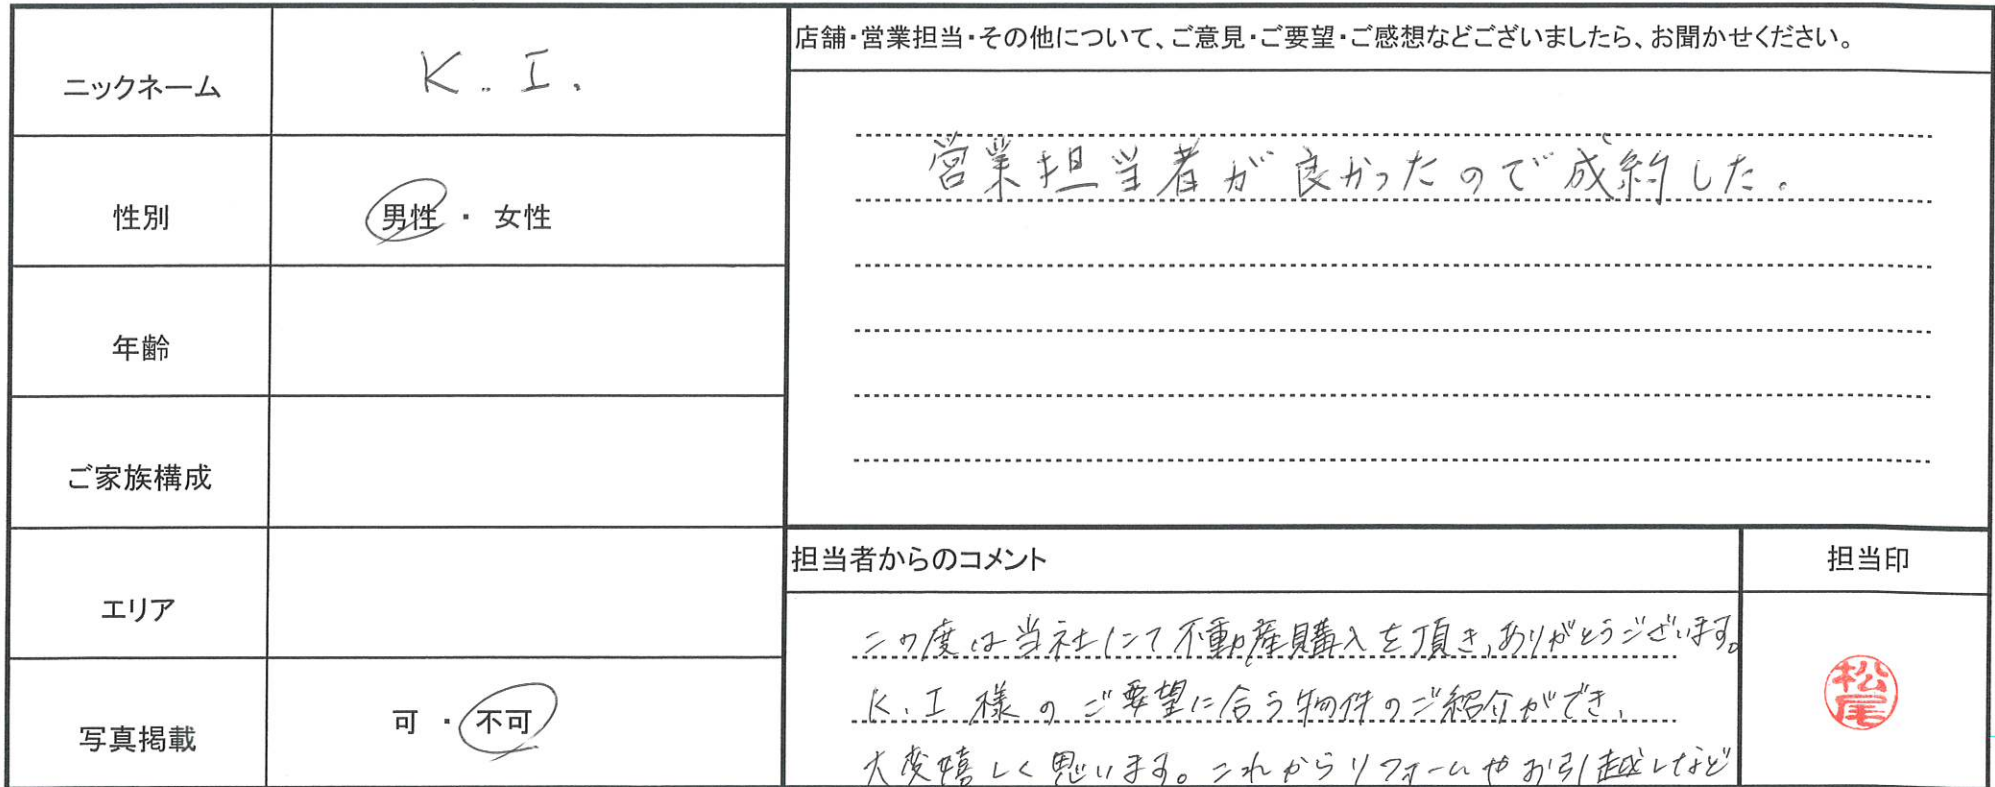 ニックネーム K. I.
性別 男性 ・ 女性
年齢
ご家族構成
エリア
写真掲載 可 ・ 不可
店舗・営業担当・その他について、ご意見・ご要望・ご感想などございましたら、お聞かせください。
営業担当者が良かったので成約した。
担当者からのコメント
この度は当社にて不動産購入を頂き、ありがとうございます。
K.I様のご要望に合う物件のご紹介ができ、
大変嬉しく思います。これからリフォームやお引越しなど
担当印
松尾